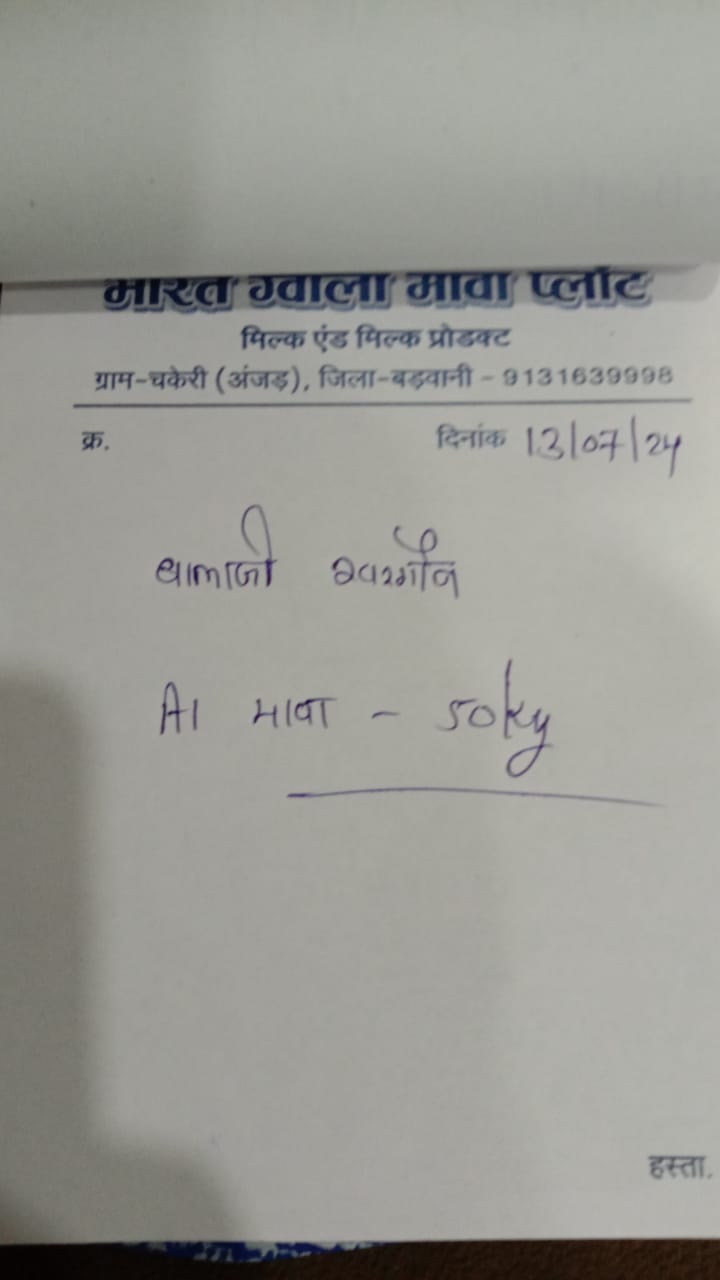 भारत ग्वाला मावा प्लांट
मिल्क एंड मिल्क प्रोडक्ट
ग्राम-चकेरी (अंजड़), जिला-बड़वानी - 9131639998
क्र. दिनांक 13/07/24
बालाजी खरगौन
A1 मावा - 50kg
हस्ता.